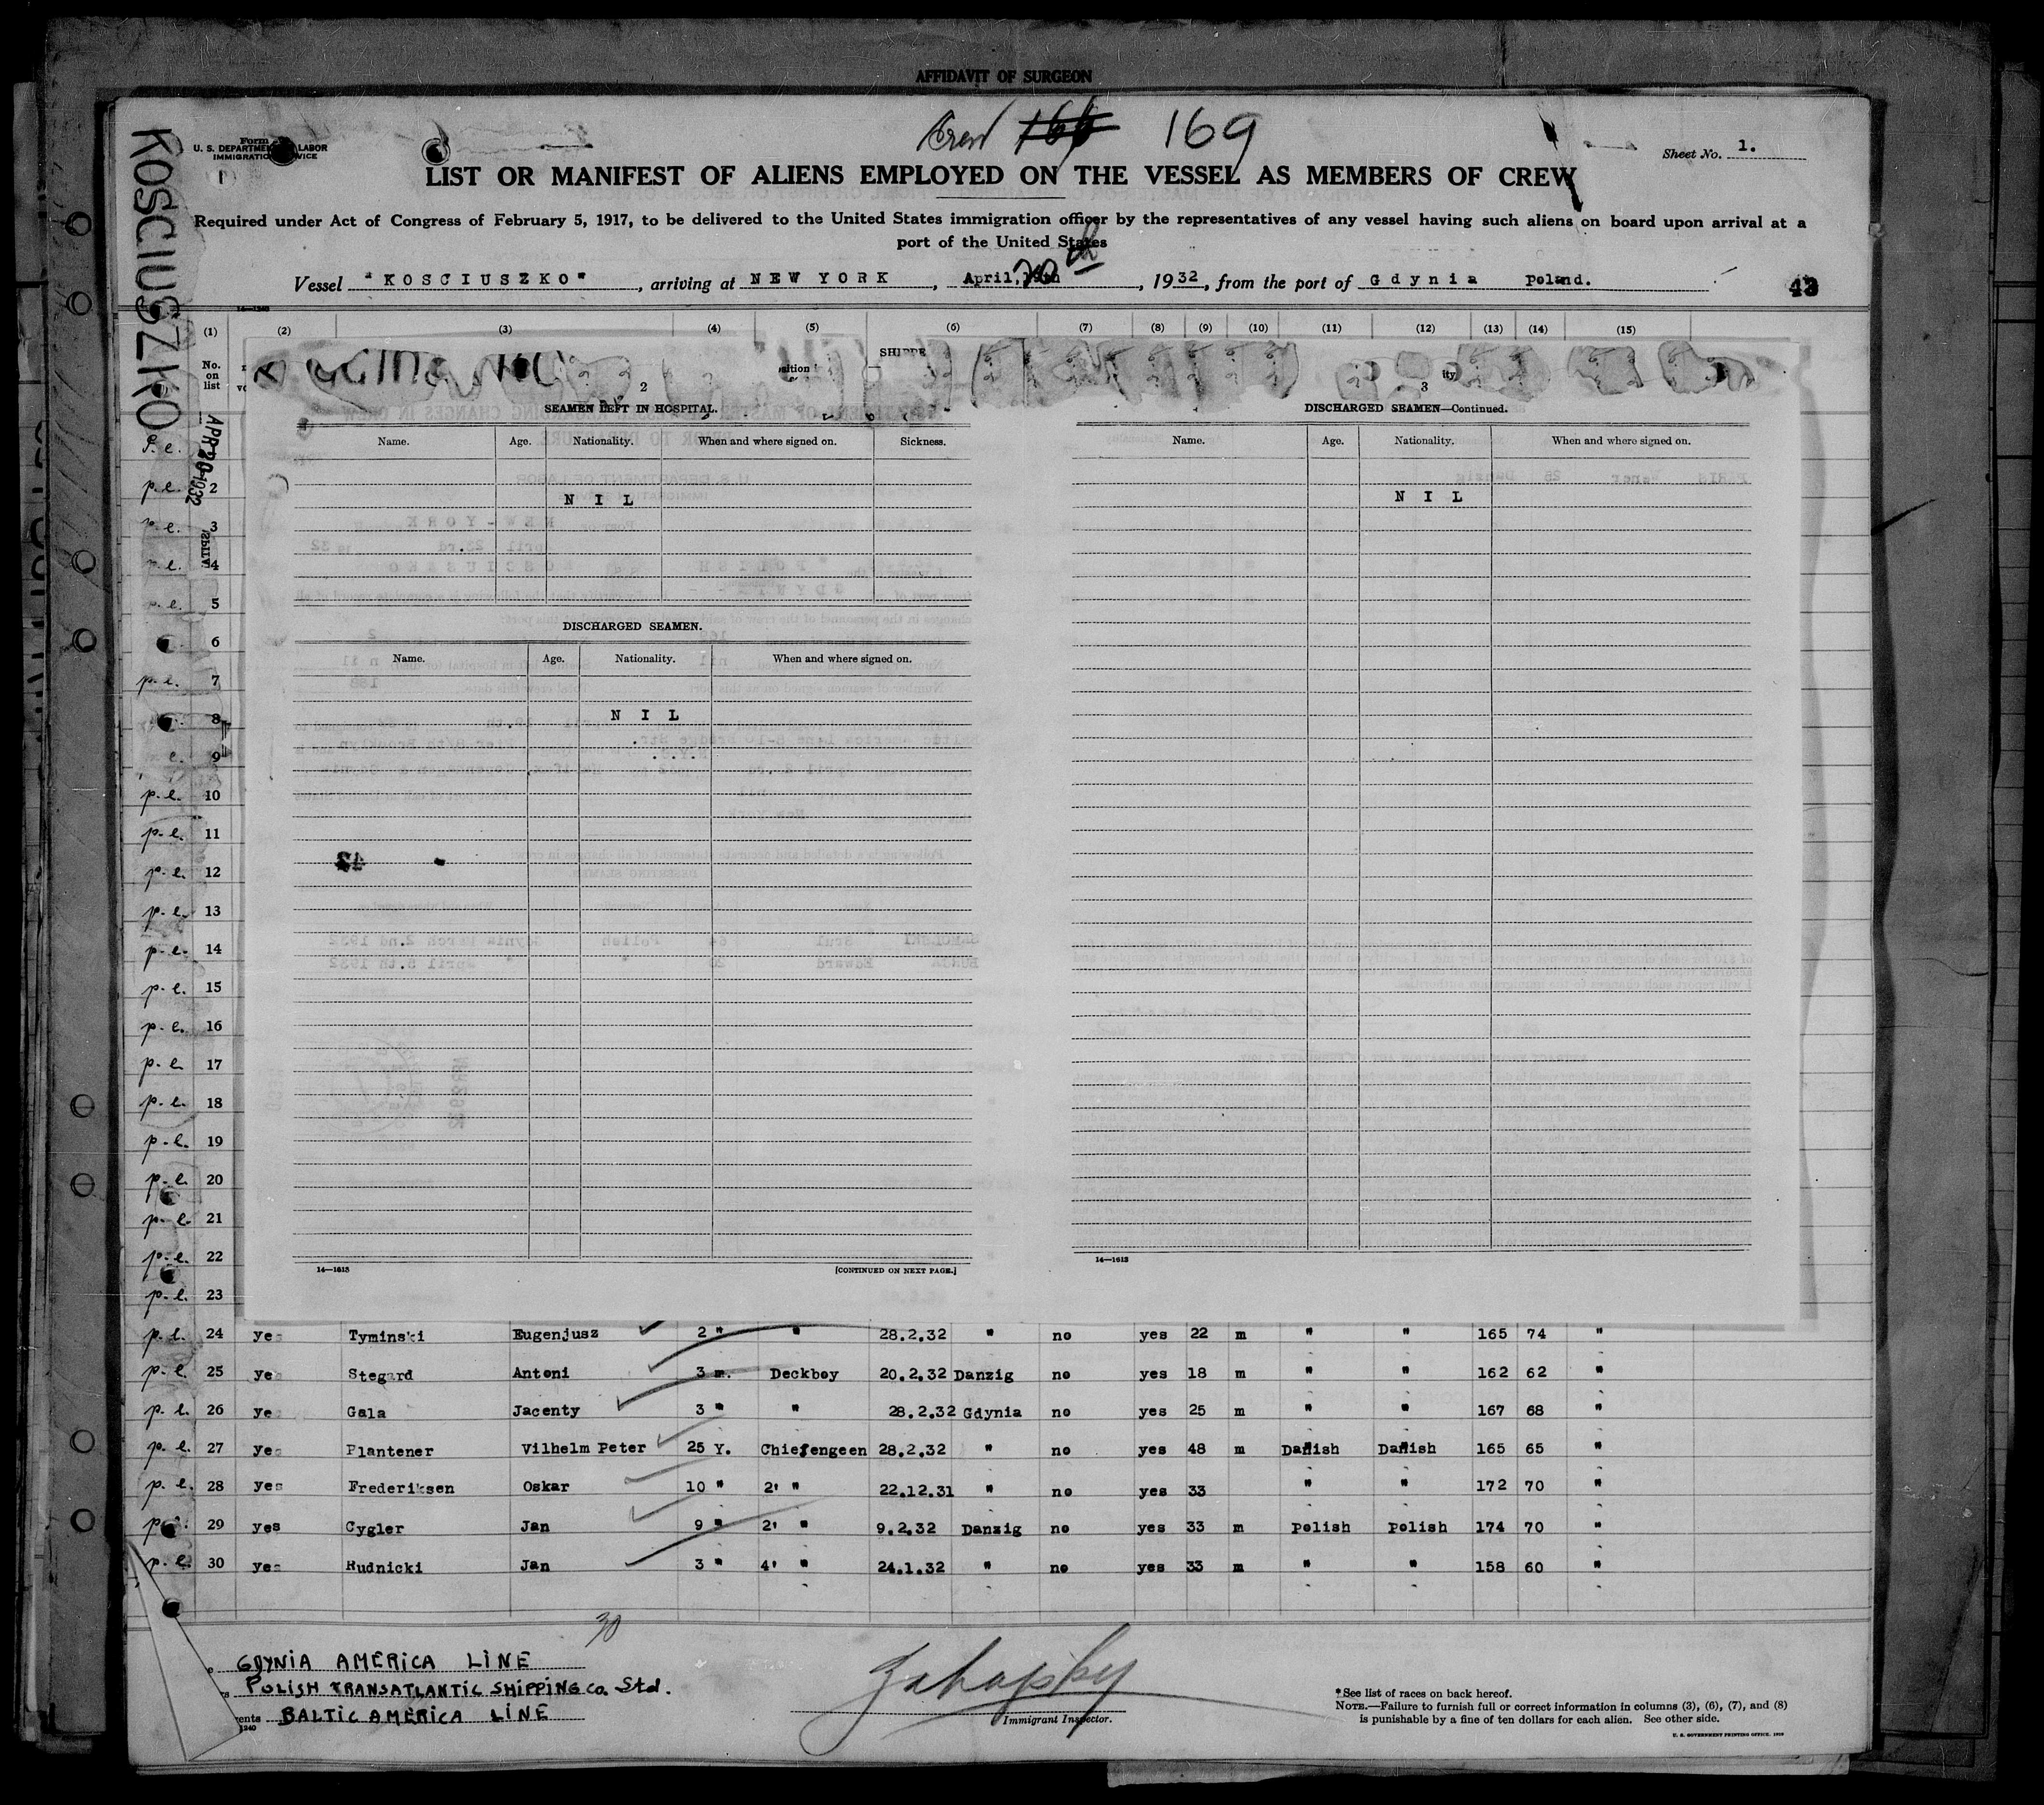 AFFIDAVIT OF SURGEON
Crew 166 169
Form
U. S. DEPARTMENT LABOR
IMMIGRATION VICE
Sheet No. 1.
KOSCIUSZKO
LIST OR MANIFEST OF ALIENS EMPLOYED ON THE VESSEL AS MEMBERS OF CREW
Required under Act of Congress of February 5, 1917, to be delivered to the United States immigration officer by the representatives of any vessel having such aliens on board upon arrival at a
port of the United States
Vessel "KOSCIUSZKO", arriving at NEW YORK, April, 20th, 1932, from the port of Gdynia Poland.
43
14—1240
(1) (2) (3) (4) (5) (6) (7) (8) (9) (10) (11) (12) (13) (14) (15)
No. on list
SHIPPE
sition
ity
APR 20 1932
2
SEAMEN LEFT IN HOSPITAL.
Name. Age. Nationality. When and where signed on. Sickness.
NIL
DISCHARGED SEAMEN.
Name. Age. Nationality. When and where signed on.
NIL
14—1613
[CONTINUED ON NEXT PAGE.]
3
DISCHARGED SEAMEN—Continued.
Name. Age. Nationality. When and where signed on.
NIL
14—1613
P. e.
p.e. 2
p.e. 3
p.e. 4
p.e. 5
6
p.e. 7
8
e. 9
p.e. 10
p.e. 11
p.e. 12
p.e. 13
p.e. 14
p.e. 15
p.e. 16
p.e 17
p.e. 18
p.e. 19
p.e. 20
p.e. 21
p.e. 22
p.e. 23
p.e. 24 yes Tyminski Eugenjusz 2 " " 28.2.32 " no yes 22 m " " 165 74 "
p.e. 25 ye Stegard Antoni 3 m. Deckboy 20.2.32 Danzig no yes 18 m " " 162 62 "
p.e. 26 ye Gala Jacenty 3 " " 28.2.32 Gdynia no yes 25 m " " 167 68 "
p.e. 27 yes Plantener Vilhelm Peter 25 Y. Chiefengeen 28.2.32 " no yes 48 m Danish Danish 165 65 "
p.e. 28 yes Frederiksen Oskar 10 " 2' " 22.12.31 " no yes 33 " " 172 70 "
p.e. 29 yes Cygler Jan 9 " 2' " 9.2.32 Danzig no yes 33 m Polish Polish 174 70 "
p.e. 30 yes Rudnicki Jan 3 " 4' " 24.1.32 " no yes 33 m " " 158 60 "
30
GDYNIA AMERICA LINE
POLISH TRANSATLANTIC SHIPPING Co. Std.
ents BALTIC AMERICA LINE
1240
Immigrant Inspector.
* See list of races on back hereof.
NOTE.—Failure to furnish full or correct information in columns (3), (6), (7), and (8)
is punishable by a fine of ten dollars for each alien. See other side.
U. S. GOVERNMENT PRINTING OFFICE. 1929